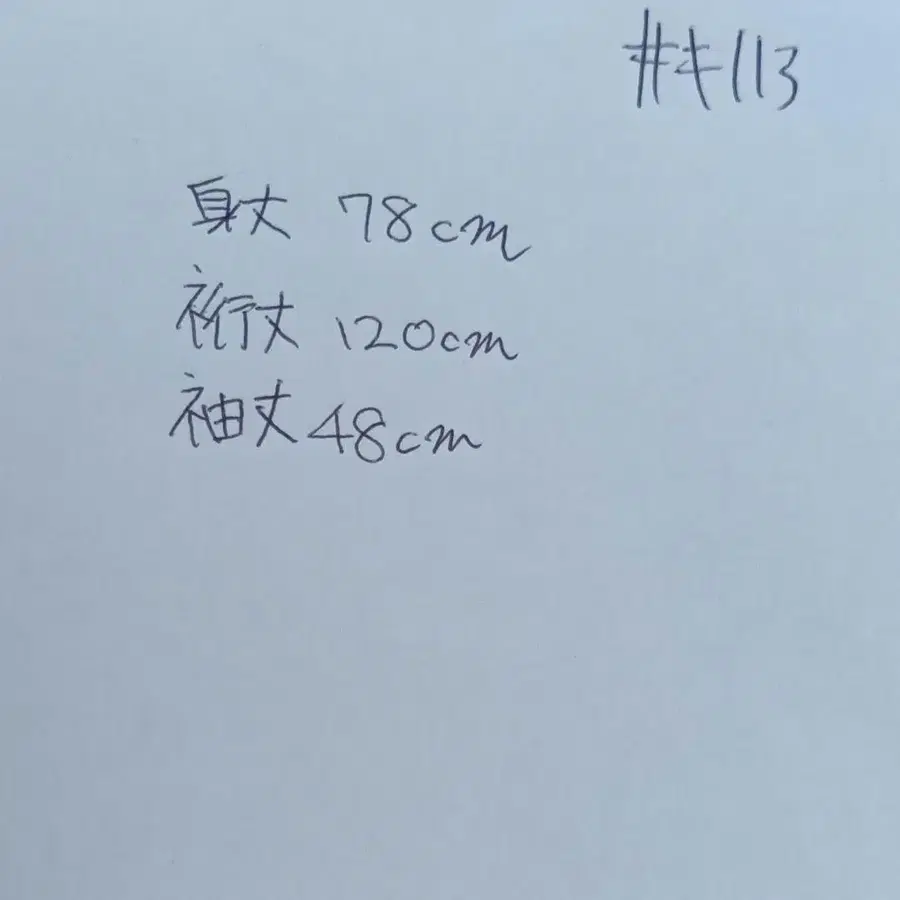 #キ113
身丈 78cm
裄丈 120cm
袖丈 48cm